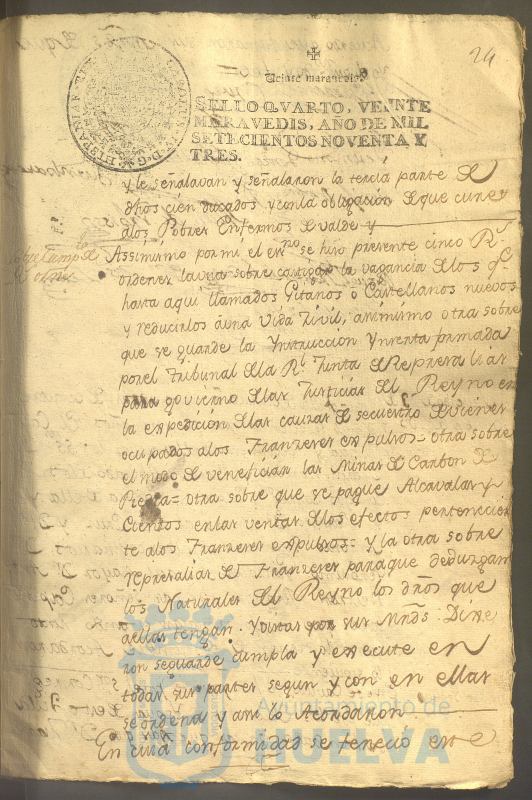 24
Veinte maravedis.
SELLO QVARTO, VEINTE
MARAVEDIS, AÑO DE MIL
SETECIENTOS NOVENTA Y
TRES.
y le señalavan y señalaron la tercia parte de
dhos cien ducados y con la obligacion de que cure
a los Pobres Enfermos de valde y
Assimismo por mi el essno se hizo presente cinco Rs
ordenes la una sobre castigar la vagancia de los qe
hasta aqui llamados Gitanos o Castellanos nuevos
y reducirlos á una vida Zivil, assimismo otra sobre
que se guarde la Ynstruccion Ynserta formada
por el Tribunal de la Rl Junta de Represalias
para govierno de las Justicias del Reyno en
la expedicion de las causas de secuestro de Vienes
ocupados a los Franzeses expulsos = otra sobre
el modo de veneficiar las Minas de Carbon de
Piedra = otra sobre que se pague Alcavalas y
Cientos en las ventas de los efectos pertenecien
te a los Franzeses expulsos = y la otra sobre
represalias de Franzeses para que deduzgan
los Naturales del Reyno los dños que
de ellas tengan. Y vistas por sus Mrds. Dixe
ron se guarde cumpla y execute en
todas sus partes segun y como en ellas
se ordena y assi lo Acordaron
En cuia conformidad se fenecio este
Ayuntamiento de
HUELVA